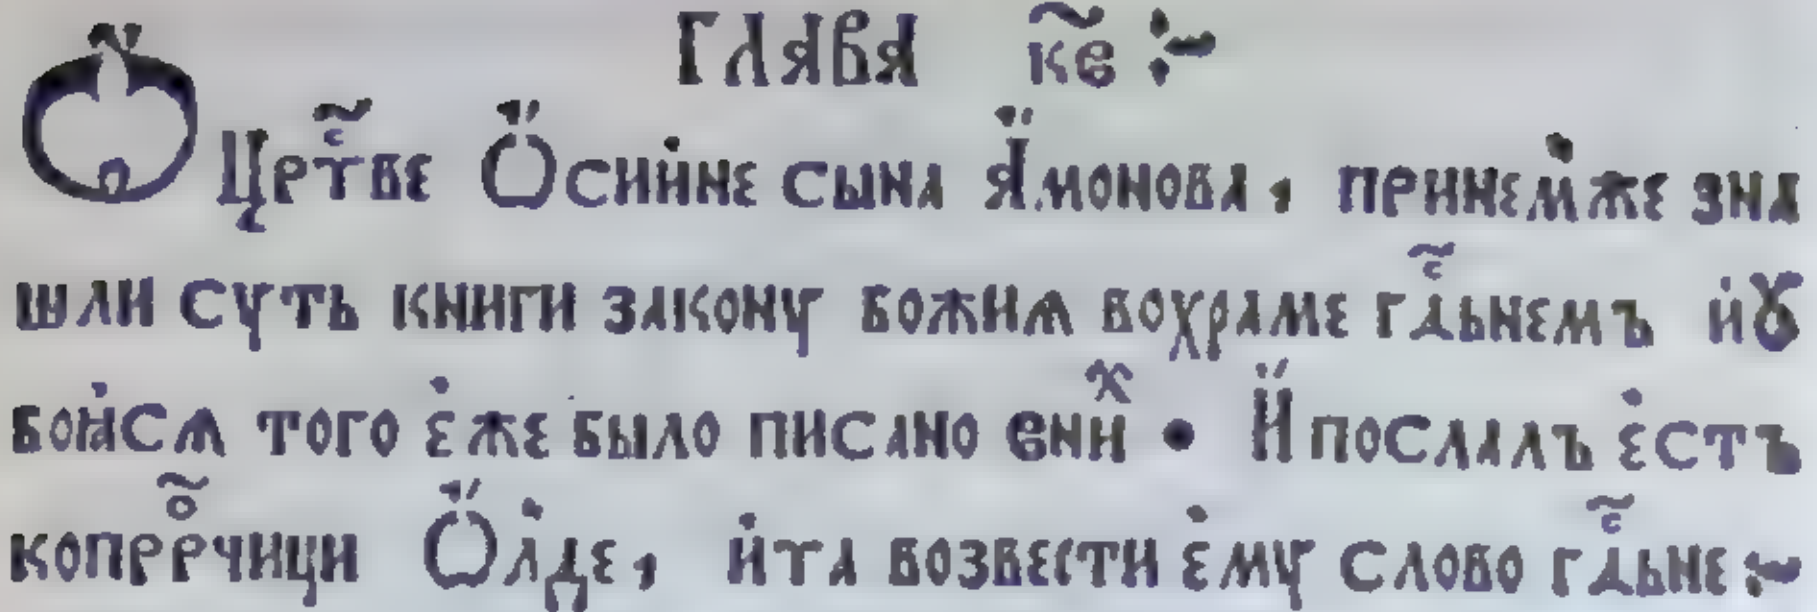 ГЛАВА к҃е :~
Ѻ Цр҃тⷭве Ѻ҆сиине сына А҆монова, принемже зна
шли суть книги закону божиѧ вохраме гдⷭ҇ьнемъ иꙋ
боꙗсѧ того еже было писано єниⷯ • И҆ послалъ естъ
копрⷪ҇рчици Ѻ҆лде, ита возвести ему слово гдⷭ҇ьне :~